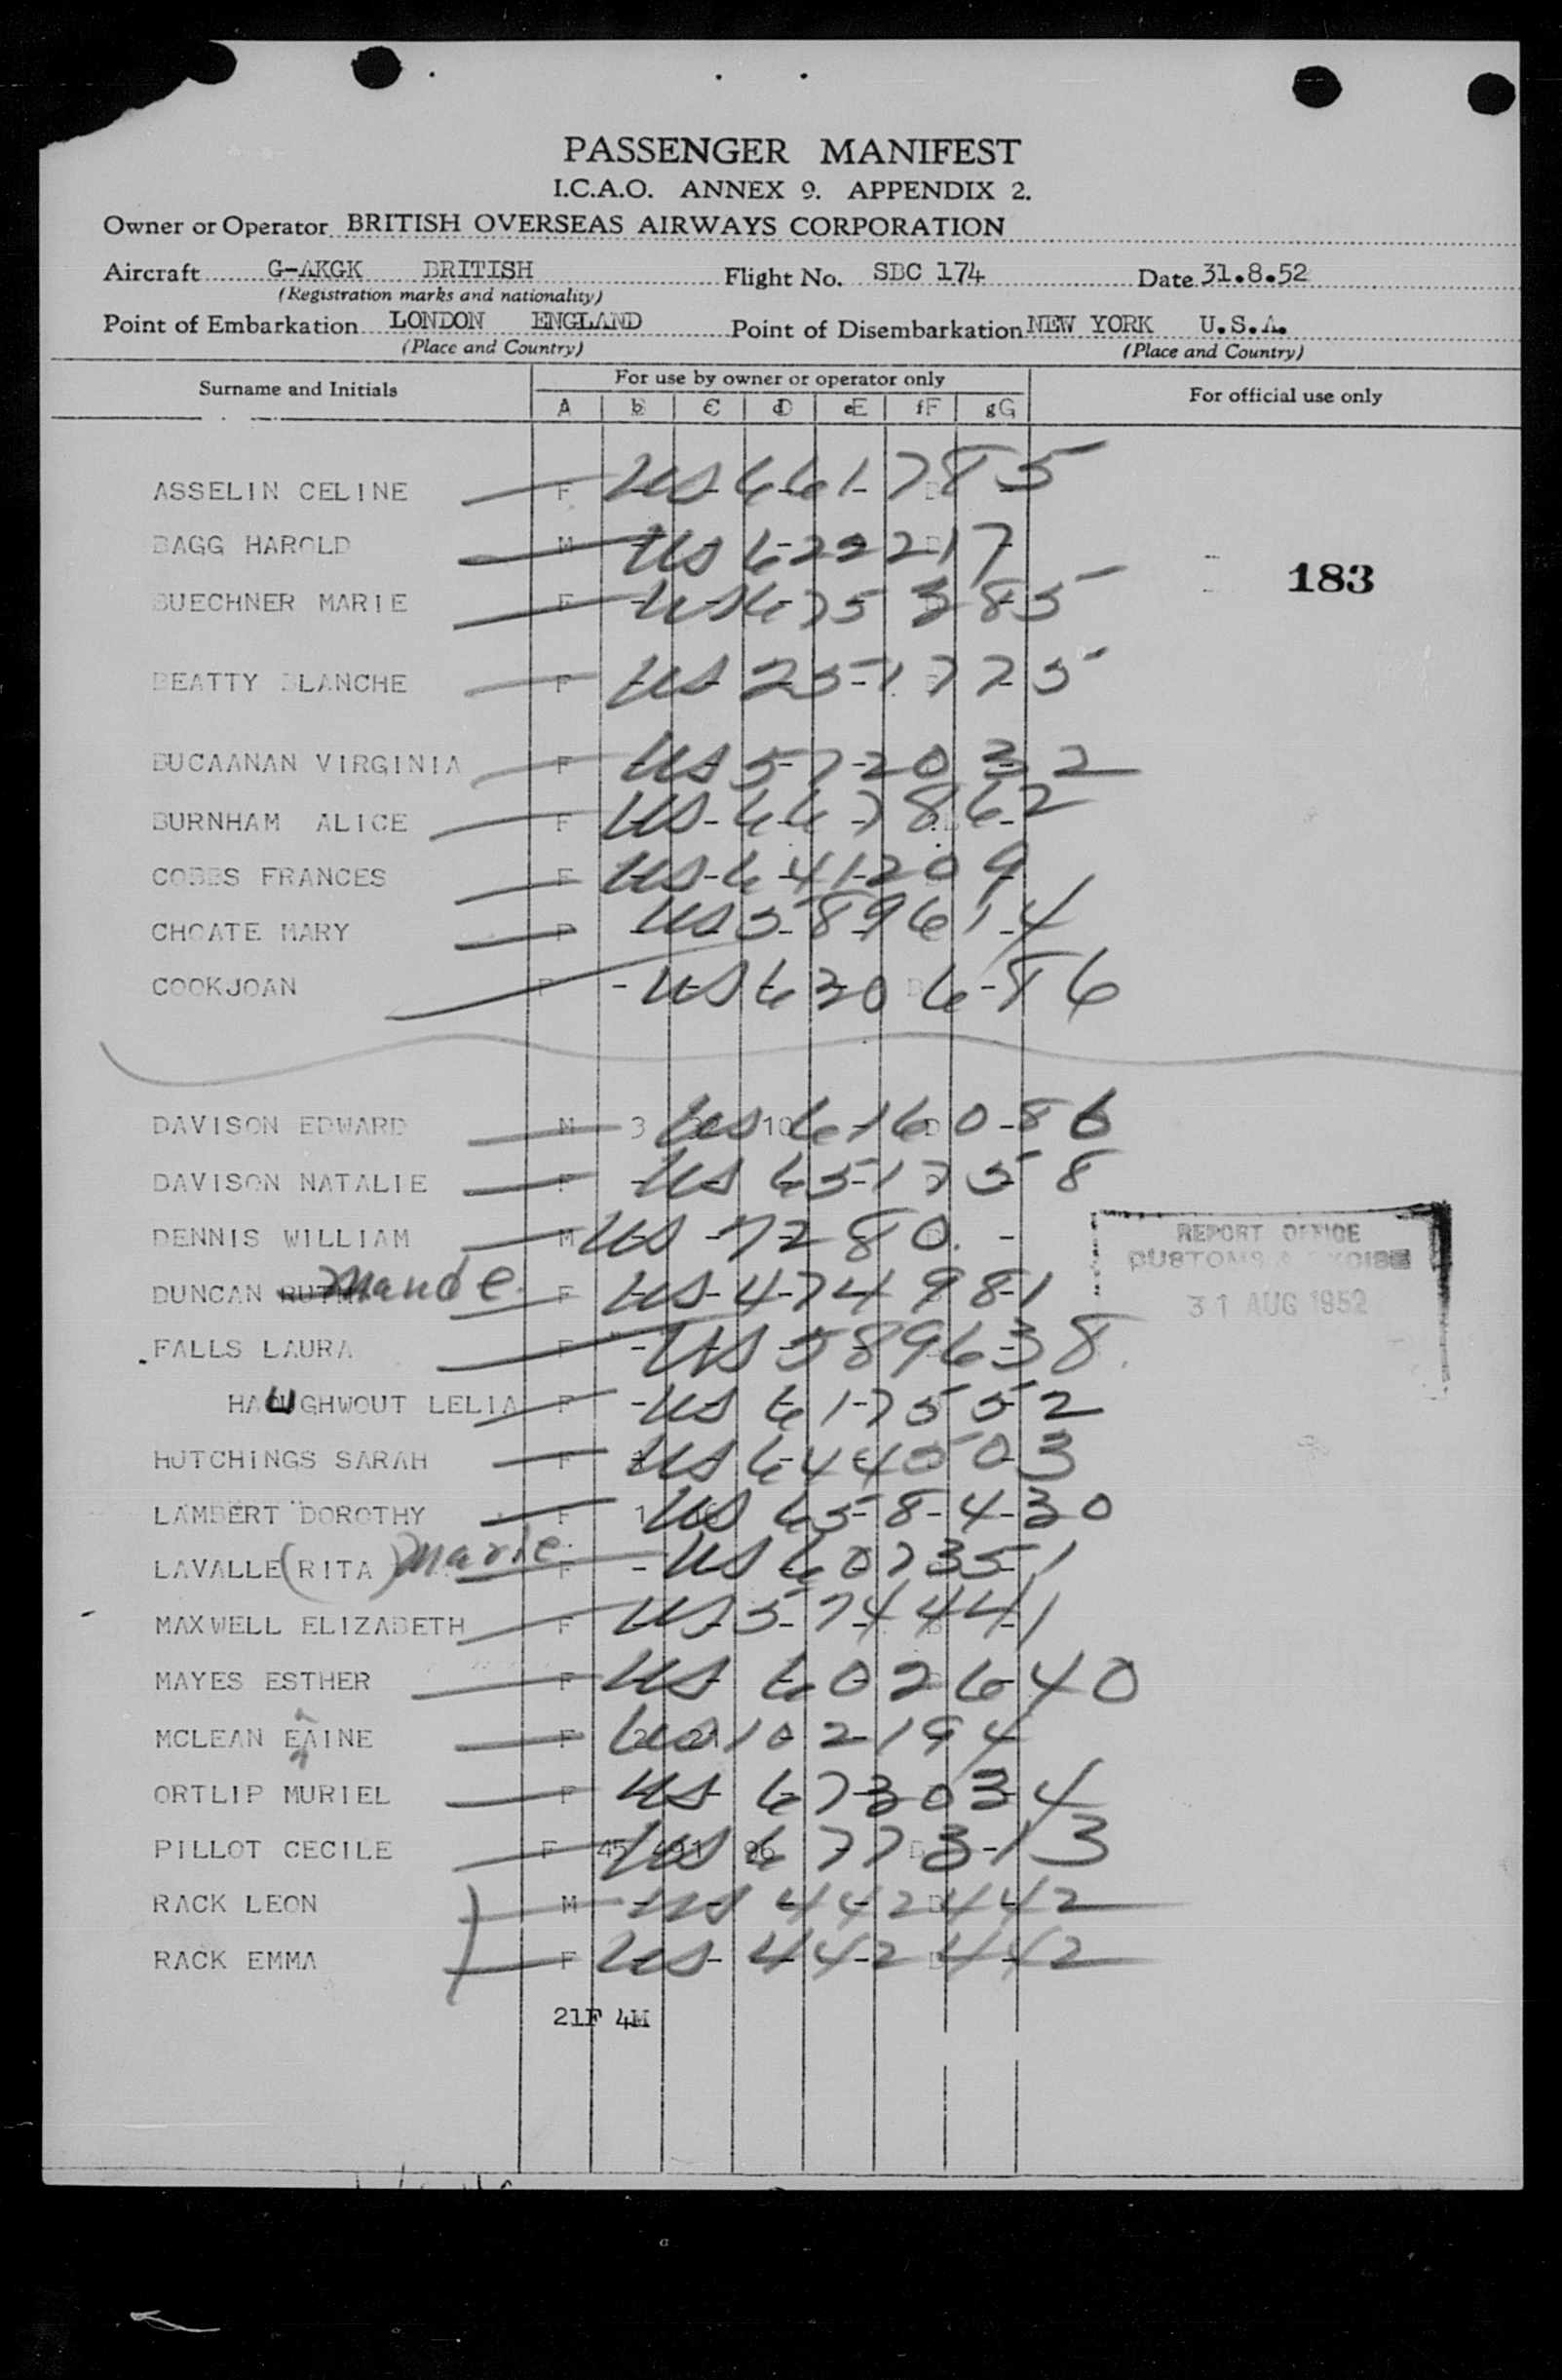 PASSENGER MANIFEST
I.C.A.O. ANNEX 9. APPENDIX 2.
Owner or Operator BRITISH OVERSEAS AIRWAYS CORPORATION
Aircraft G-AKGK BRITISH Flight No. SBC 174 Date 31.8.52
(Registration marks and nationality)
Point of Embarkation LONDON ENGLAND Point of Disembarkation NEW YORK U.S.A.
(Place and Country) (Place and Country)
Surname and Initials For use by owner or operator only For official use only
A b C d eE fF gG
ASSELIN CELINE F US 661785
BAGG HAROLD M US 622217
183
BUECHNER MARIE F US 675385
BEATTY BLANCHE F US 251775
BUCAANAN VIRGINIA F US 572032
BURNHAM ALICE F US 667862
COBBS FRANCES F US 641209
CHOATE MARY F US 589614
COOKJOAN F US 630686
DAVISON EDWARD M 3 10 US 616086 D
DAVISON NATALIE F US 651758
DENNIS WILLIAM M US 7280
REPORT OFFICE
CUSTOMS & EXCISE
31 AUG 1952
DUNCAN RUTH Maude F US 474981
FALLS LAURA F US 589638
HAUGHWOUT LELIA F US 617552
HUTCHINGS SARAH F US 644503
LAMBERT DOROTHY F 1 US 658430
LAVALLE (RITA) Marie F US 607351
MAXWELL ELIZABETH F US 574441
MAYES ESTHER F US 602640
MCLEAN EAINE F 2 21 US 102194
ORTLIP MURIEL F US 673034
PILLOT CECILE F 45 96 US 677313
RACK LEON M US 442442
RACK EMMA F US 442442
21F 4M